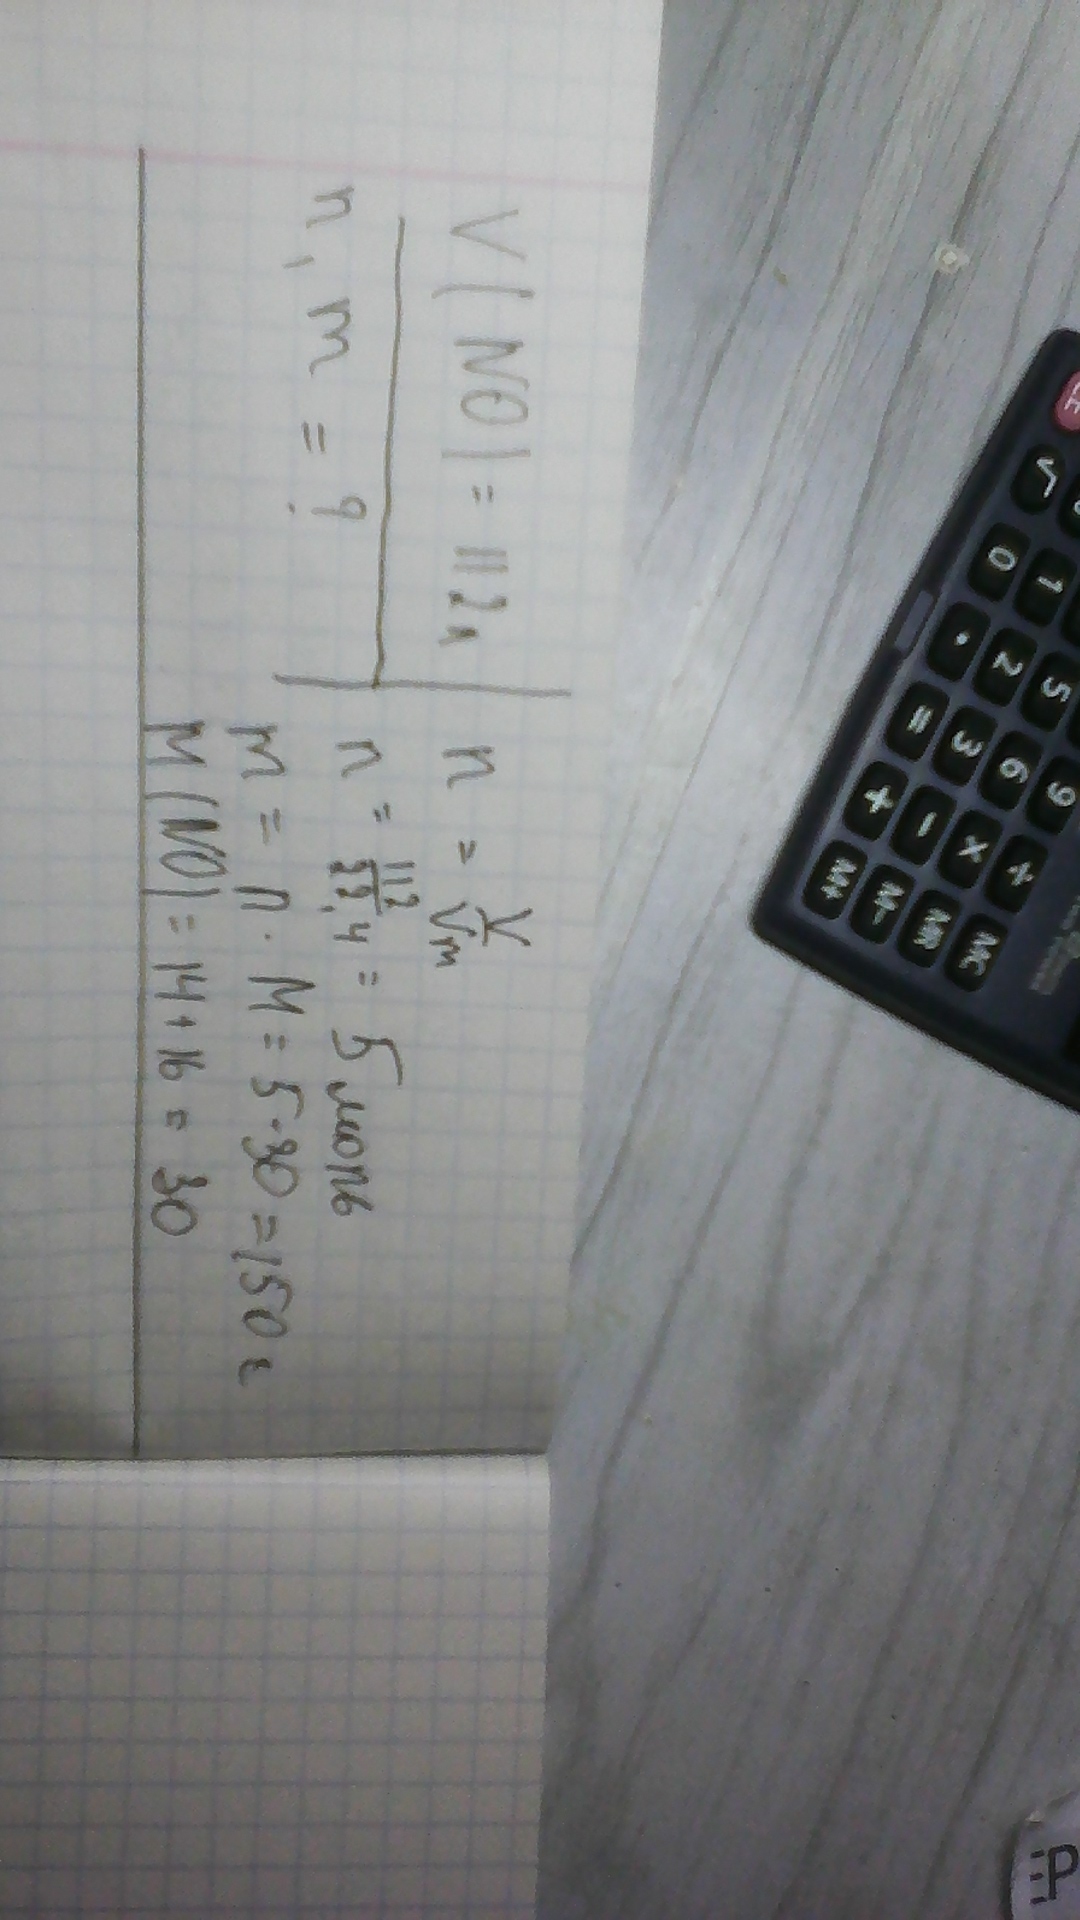 V(NO) = 112л
n, m = ?
n = V/Vm
n = 112/22,4 = 5 моль
m = n · M = 5·30 = 150 г
M(NO) = 14+16 = 30
√ 0 · = + M+
1 2 3 − M−
5 6 × MR
9 ÷ MC